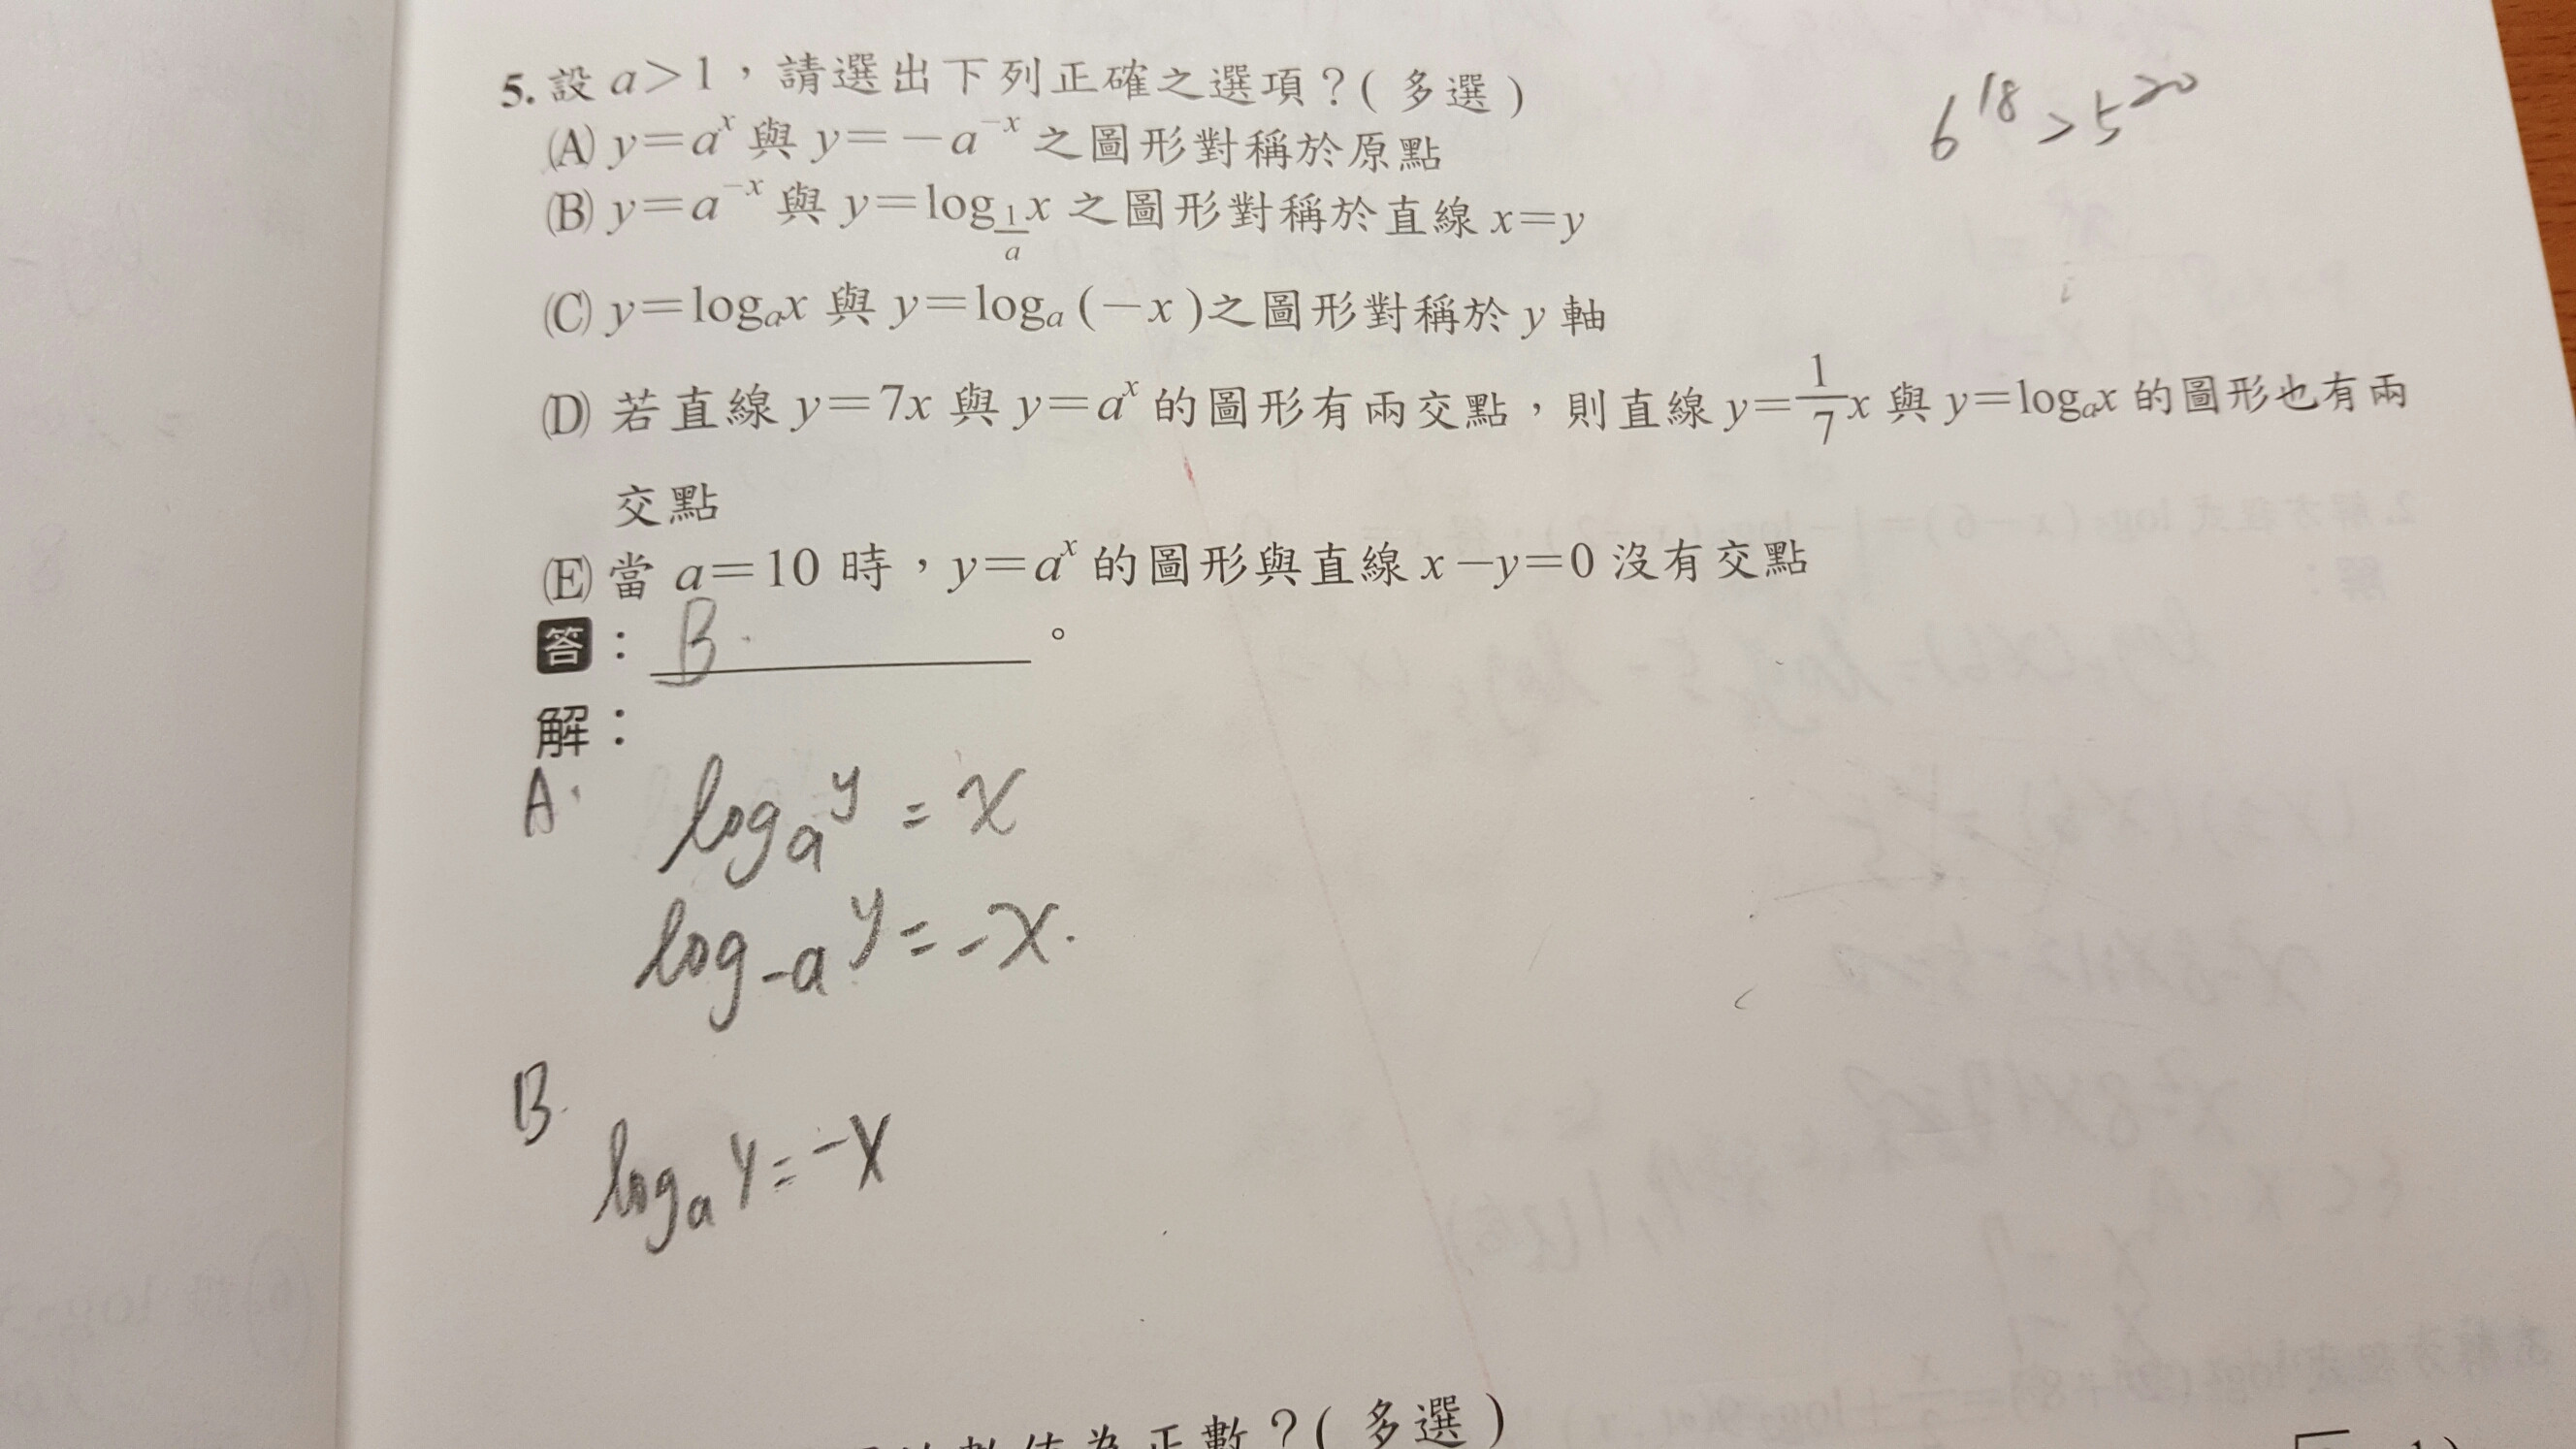 5. 設 a>1，請選出下列正確之選項？( 多選 )
6^18 > 5^20
(A) y=a^x 與 y=-a^-x 之圖形對稱於原點
(B) y=a^-x 與 y=log_1/a x 之圖形對稱於直線 x=y
(C) y=log_a x 與 y=log_a (-x)之圖形對稱於 y 軸
(D) 若直線 y=7x 與 y=a^x 的圖形有兩交點，則直線 y=1/7 x 與 y=log_a x 的圖形也有兩
交點
(E) 當 a=10 時，y=a^x 的圖形與直線 x-y=0 沒有交點
答： B. 。
解：
A. log_a y = x
log_-a y = -x.
B. log_a y = -x
為正數？( 多選 )